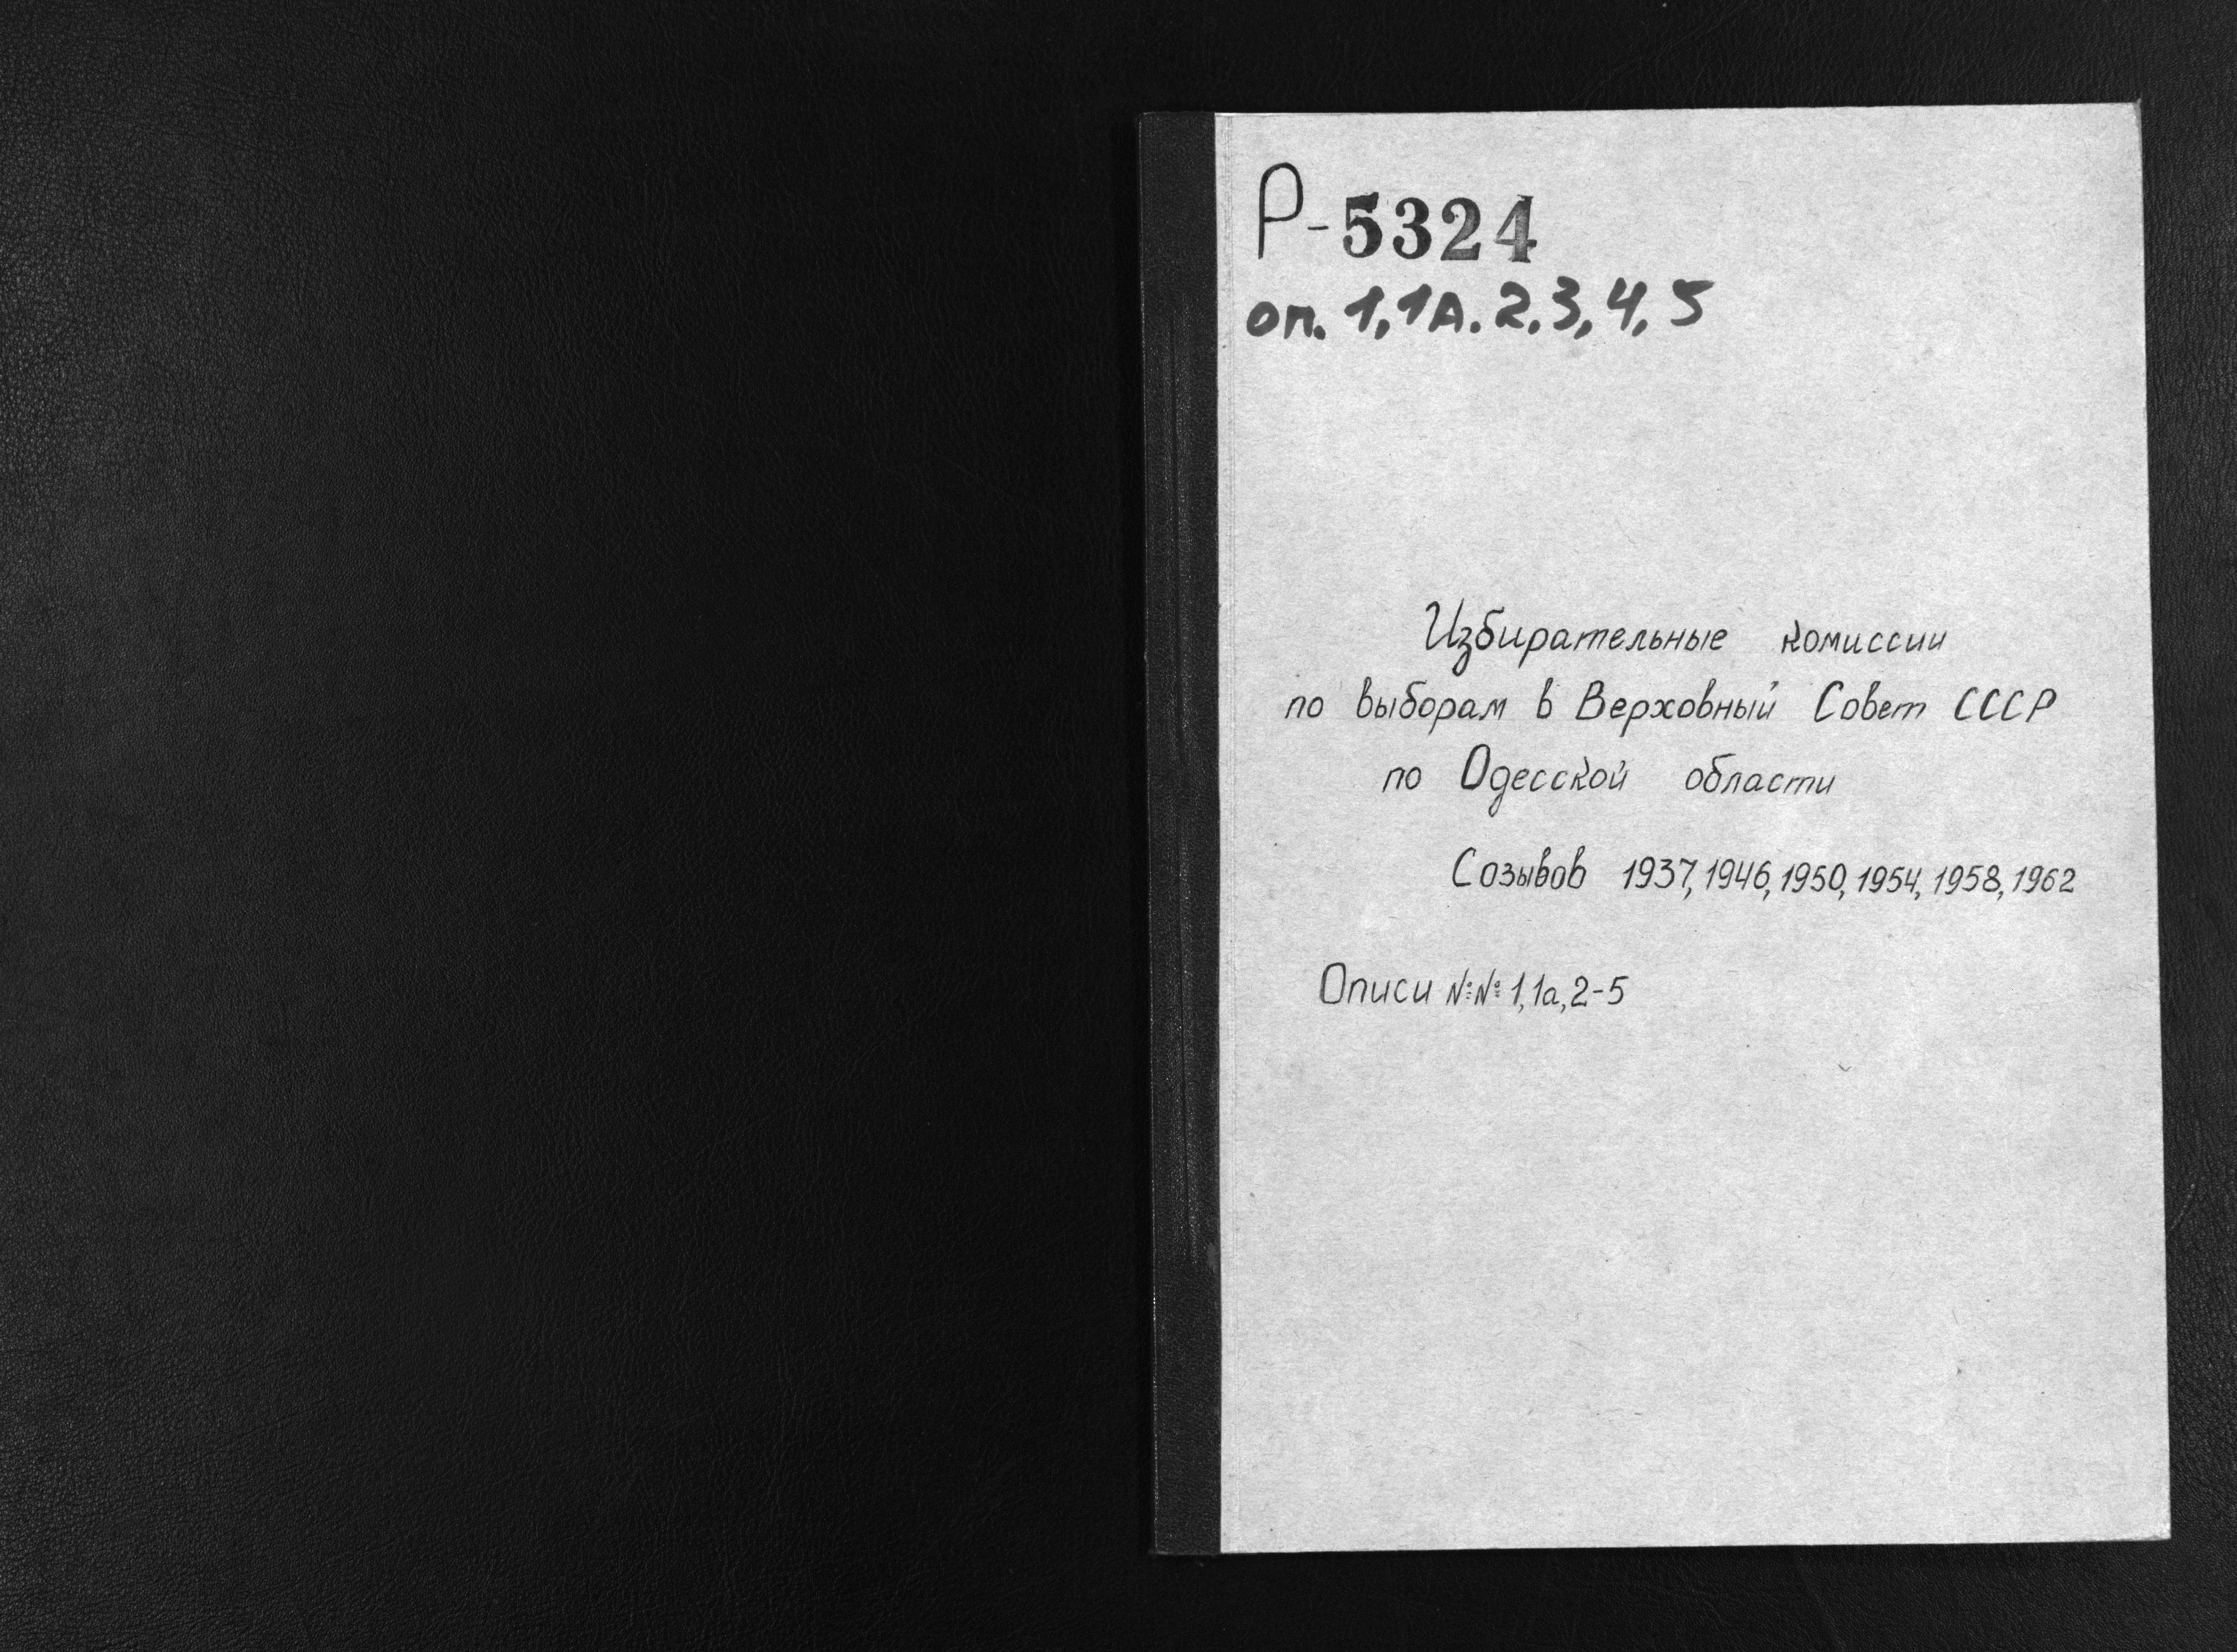 Р-5324
оп. 1, 1А. 2, 3, 4, 5
Избирательные комиссии
по выборам в Верховный Совет СССР
по Одесской области
Созывов 1937, 1946, 1950, 1954, 1958, 1962
Описи №№ 1, 1а, 2-5